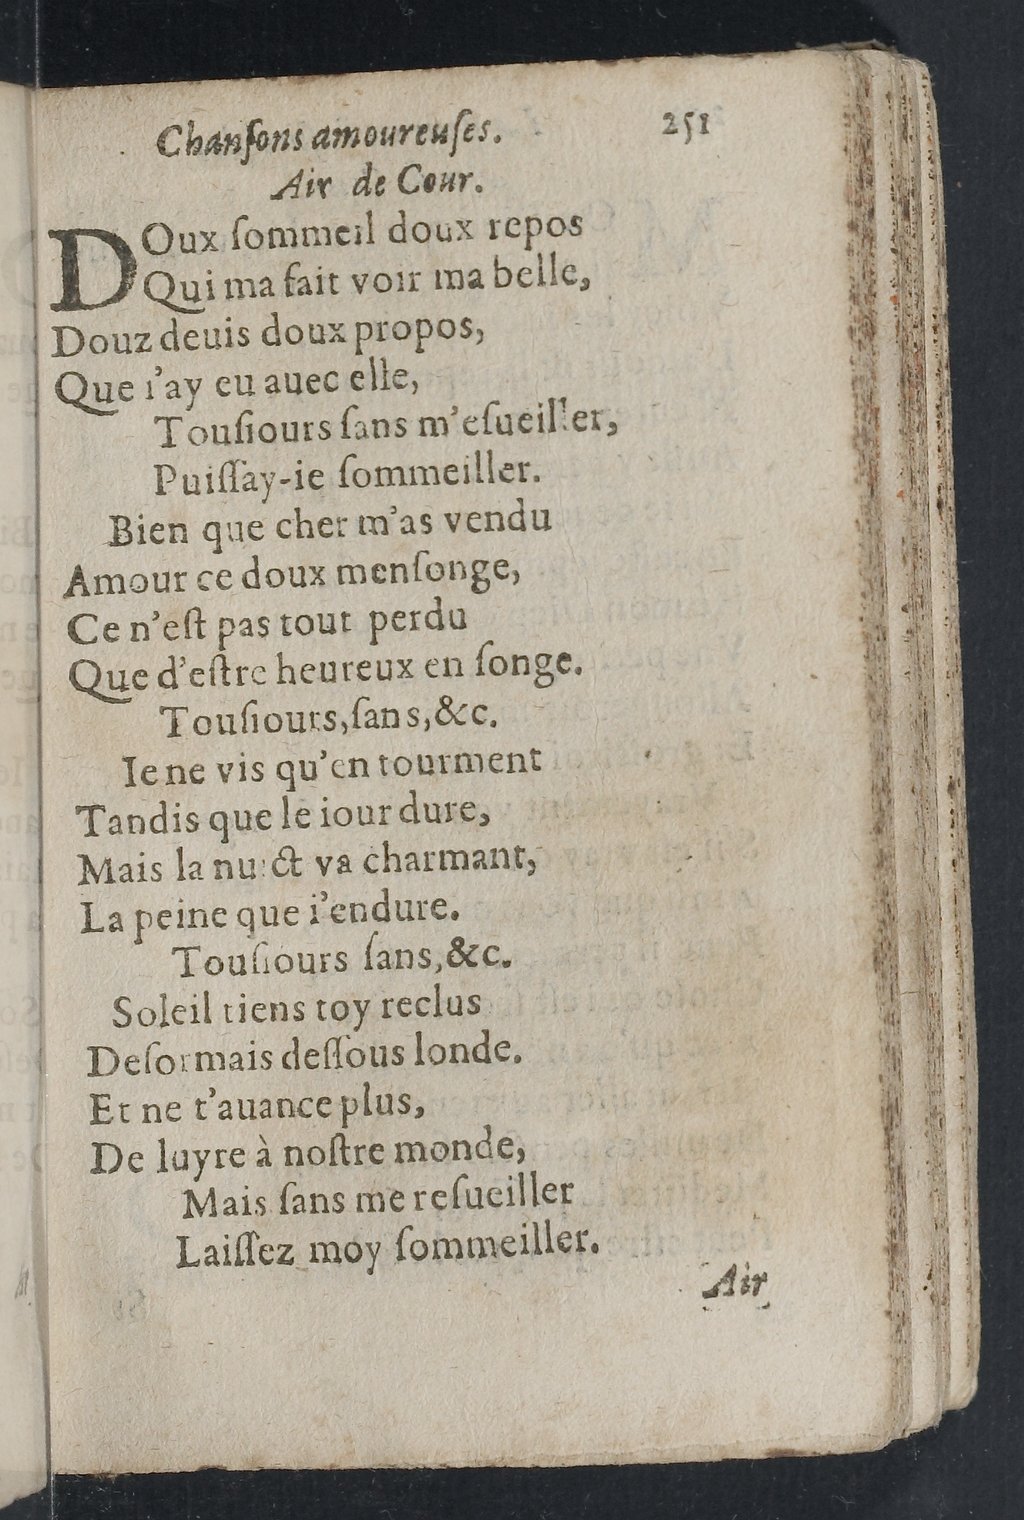 Chanſons amoureuſes. 251
Air de Cour.
DOux ſommeil doux repos
Qui ma fait voir ma belle,
Douz deuis doux propos,
Que i'ay eu auec elle,
Touſiours ſans m'eſueiller,
Puiſſay-ie ſommeiller.
Bien que cher m'as vendu
Amour ce doux menſonge,
Ce n'eſt pas tout perdu
Que d'eſtre heureux en ſonge.
Touſiours,ſans,&c.
Ie ne vis qu'en tourment
Tandis que le iour dure,
Mais la nuict va charmant,
La peine que i'endure.
Touſiours ſans,&c.
Soleil tiens toy reclus
Deſormais deſſous londe.
Et ne t'auance plus,
De luyre à noſtre monde,
Mais ſans me reſueiller
Laiſſez moy ſommeiller.
Air